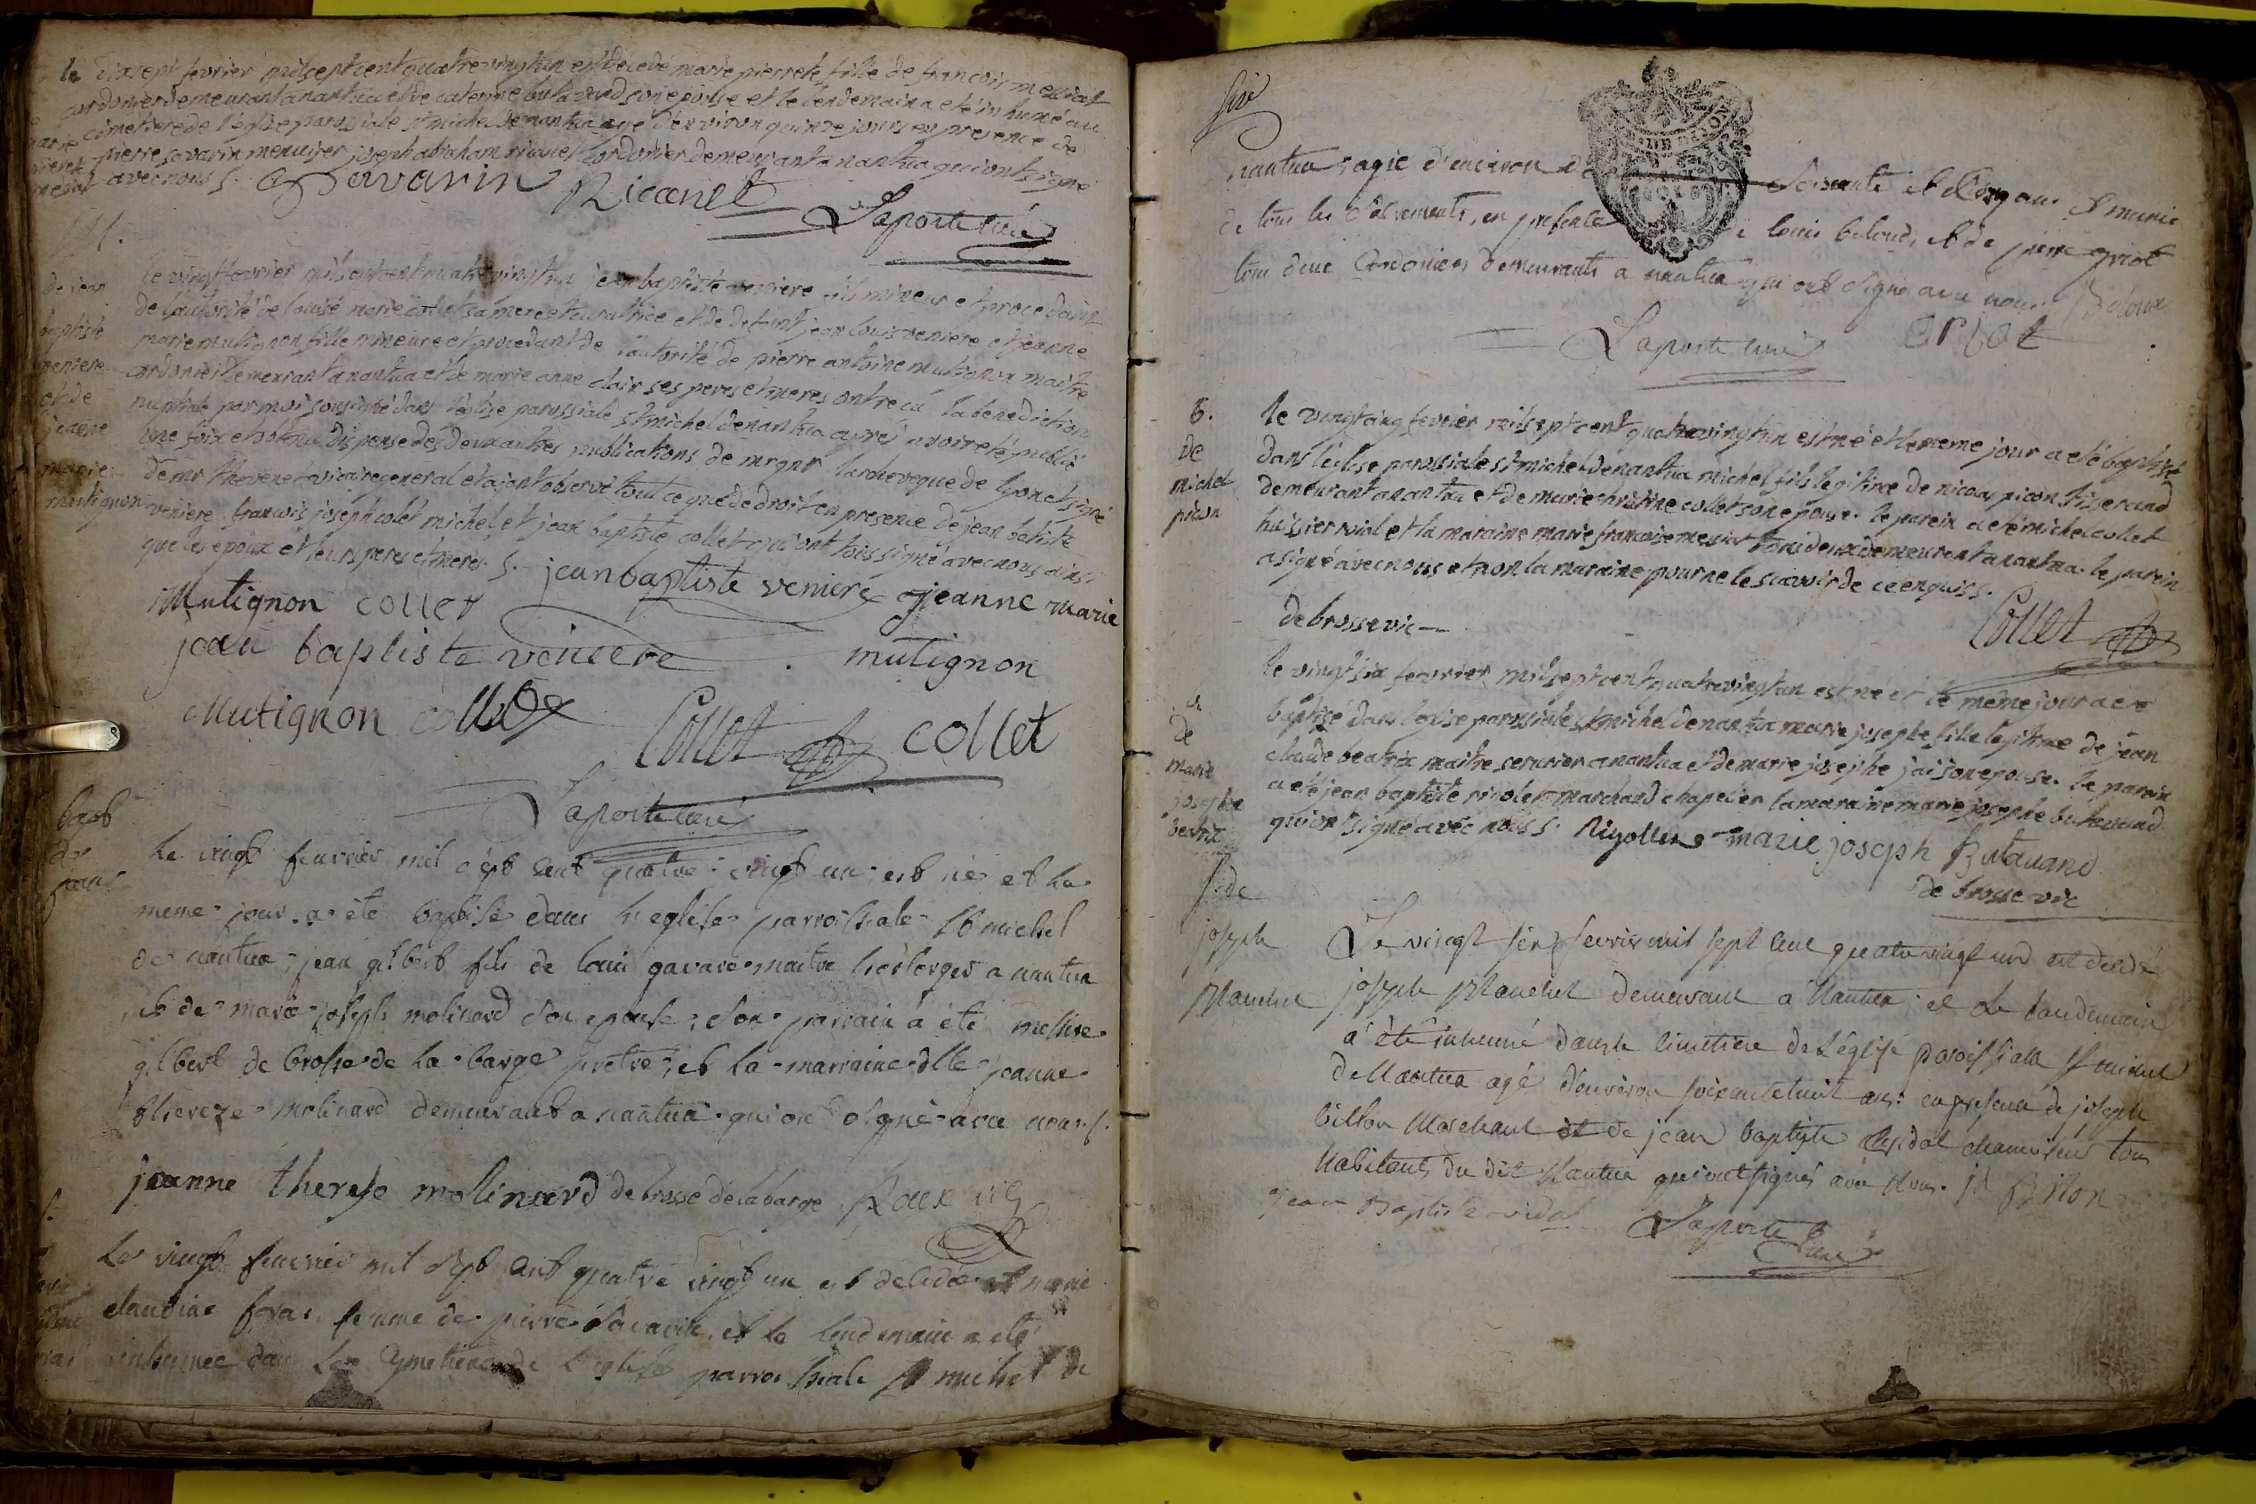 le dixsept fevrier milseptcent quatrevingtun est decedé marie pierrete fille de francois mexiat
cordonier demeurant a nantua et de caterine butavand son epouse et le lendemain a eté inhumé au
cimetiere de l'eglise parossiale st michel de nantua agé d'environ quinze jours en presence de
pierre savarin menuisier joseph abraham ricanet cordonier demeurant a nantua qui ont signé
avec nous s. Savarin Ricanet
Laporte curé
M.
de jean
baptiste
veniere
et de
jeanne
marie
mutignon
le vingt fevrier milseptcent quatrevingtun jean baptiste veniere fils mineur et procedant
de l'autorité de louise marie collet sa mere et curatrice et de defunt jean louis veniere et jeanne
marie mutignon fille mineure et procedant de l'autorité de pierre antoine mutignon maitre
cordonier demeurant a nantua et de marie anne clair ses peres et meres ont recu la benediction
nuptiale par moi soussigné dans l'eglise parossiale st michel de nantua aprés avoir eté publié
une fois et obtenu dispense des deux autres publications de mrgnr l'archeveque de lyon et signé
de mr thevenet vicaire general et ajant observé tout ce que de droit en presence de jean batiste
veniere francois joseph colet michel et jean baptiste collet qui ont tous signé avec nous ainsi
que les epoux et leurs peres et meres s. jean baptiste veniere jeanne marie
Mutignon collet
jean baptiste veniere mutignon
Mutignon collet
Collet collet
Laporte curé
bapt
de
jean
Le vingt feuvrier mil sept cent quatre vingt un est né et le
meme jour a été baptisé dans l'eglise parroissiale st michel
de nantua jean gilbert fils de louis gavare maitre horloger a nantua
et de marie joseph molinard son epouse son parrain a été messire
gilbert de brosse de la barge pretre et la marraine dlle jeanne
thereze molinard demeurant a nantua qui ont signé avec nous s.
jeanne therese molinard debrosse delabarge Roux vic
Le vingt feuvrier mil sept cent quatre vingt un est decedée marie
claudine feras femme de pierre Savarin et le lendemain a été
inhumée dans le cymetiere de l'eglise parroissiale st michel de
six
nantua agée d'environ soixante et cinq ans munie
de tous les sacrements, en presence de louis beloud, et de pierre griot
tous deux cordoniers demeurants a nantua qui ont signé avec nous Beloud
Laporte curé griot
B.
de
michel
picon
le vingtcinq fevrier milseptcent quatrevingtun est né et le meme jour a eté baptisé
dans l'eglise parossiale st michel de nantua michel fils legitime de nicolas picon tisserand
demeurant a nantua et de marie christine collet son epouse. le parein a eté michel collet
huissier roial et la maraine marie francoise mexiat tous deux demeurent a nantua. le parein
a signé avec nous et non la maraine pour ne le scavoir de ce enquis s.
debrosse vic Collet
de
marie
josephe
beatrix
le vingtsix fevrier milseptcent quatrevingtun est né et le même jour a eté
baptisé dans l'eglise parossiale st michel de nantua marie josephe fille legitime de jean
claude beatrix maitre serurier a nantua et de marie josephe jai son epouse. le parein
a eté jean baptiste rigolet marchand chapelier la maraine marie josephe butavand
qui ont signé avec nous s. Rigollet marie joseph Butavand
de brosse vic
S. de
joseph
Blanchet
Le vingt sept fevrier mil sept cent quatre vingt un est decedé
joseph Blanchet demeurant a Nantua, et le landemain
a été inhumé dans le cimetiere de L'église paroissialle St michel
de Nantua agé d'environ soixante huit ans en presence de joseph
billon Marchant et de jean baptiste Vidal chamoiseur tous
habitants du dit Nantua qui ont signés avec Nous. j Billon
jean Baptiste vidal Laporte curé